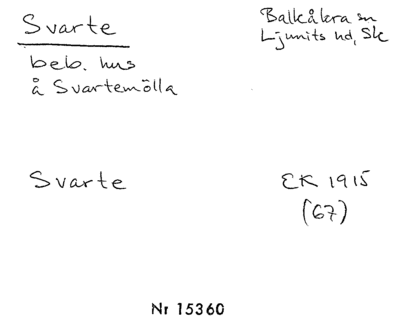 Svarte
Balkåkra sn
Ljunits hd, Sk
beb. hus
å Svartemölla
Svarte
EK 1915
(67)
Nr 15360